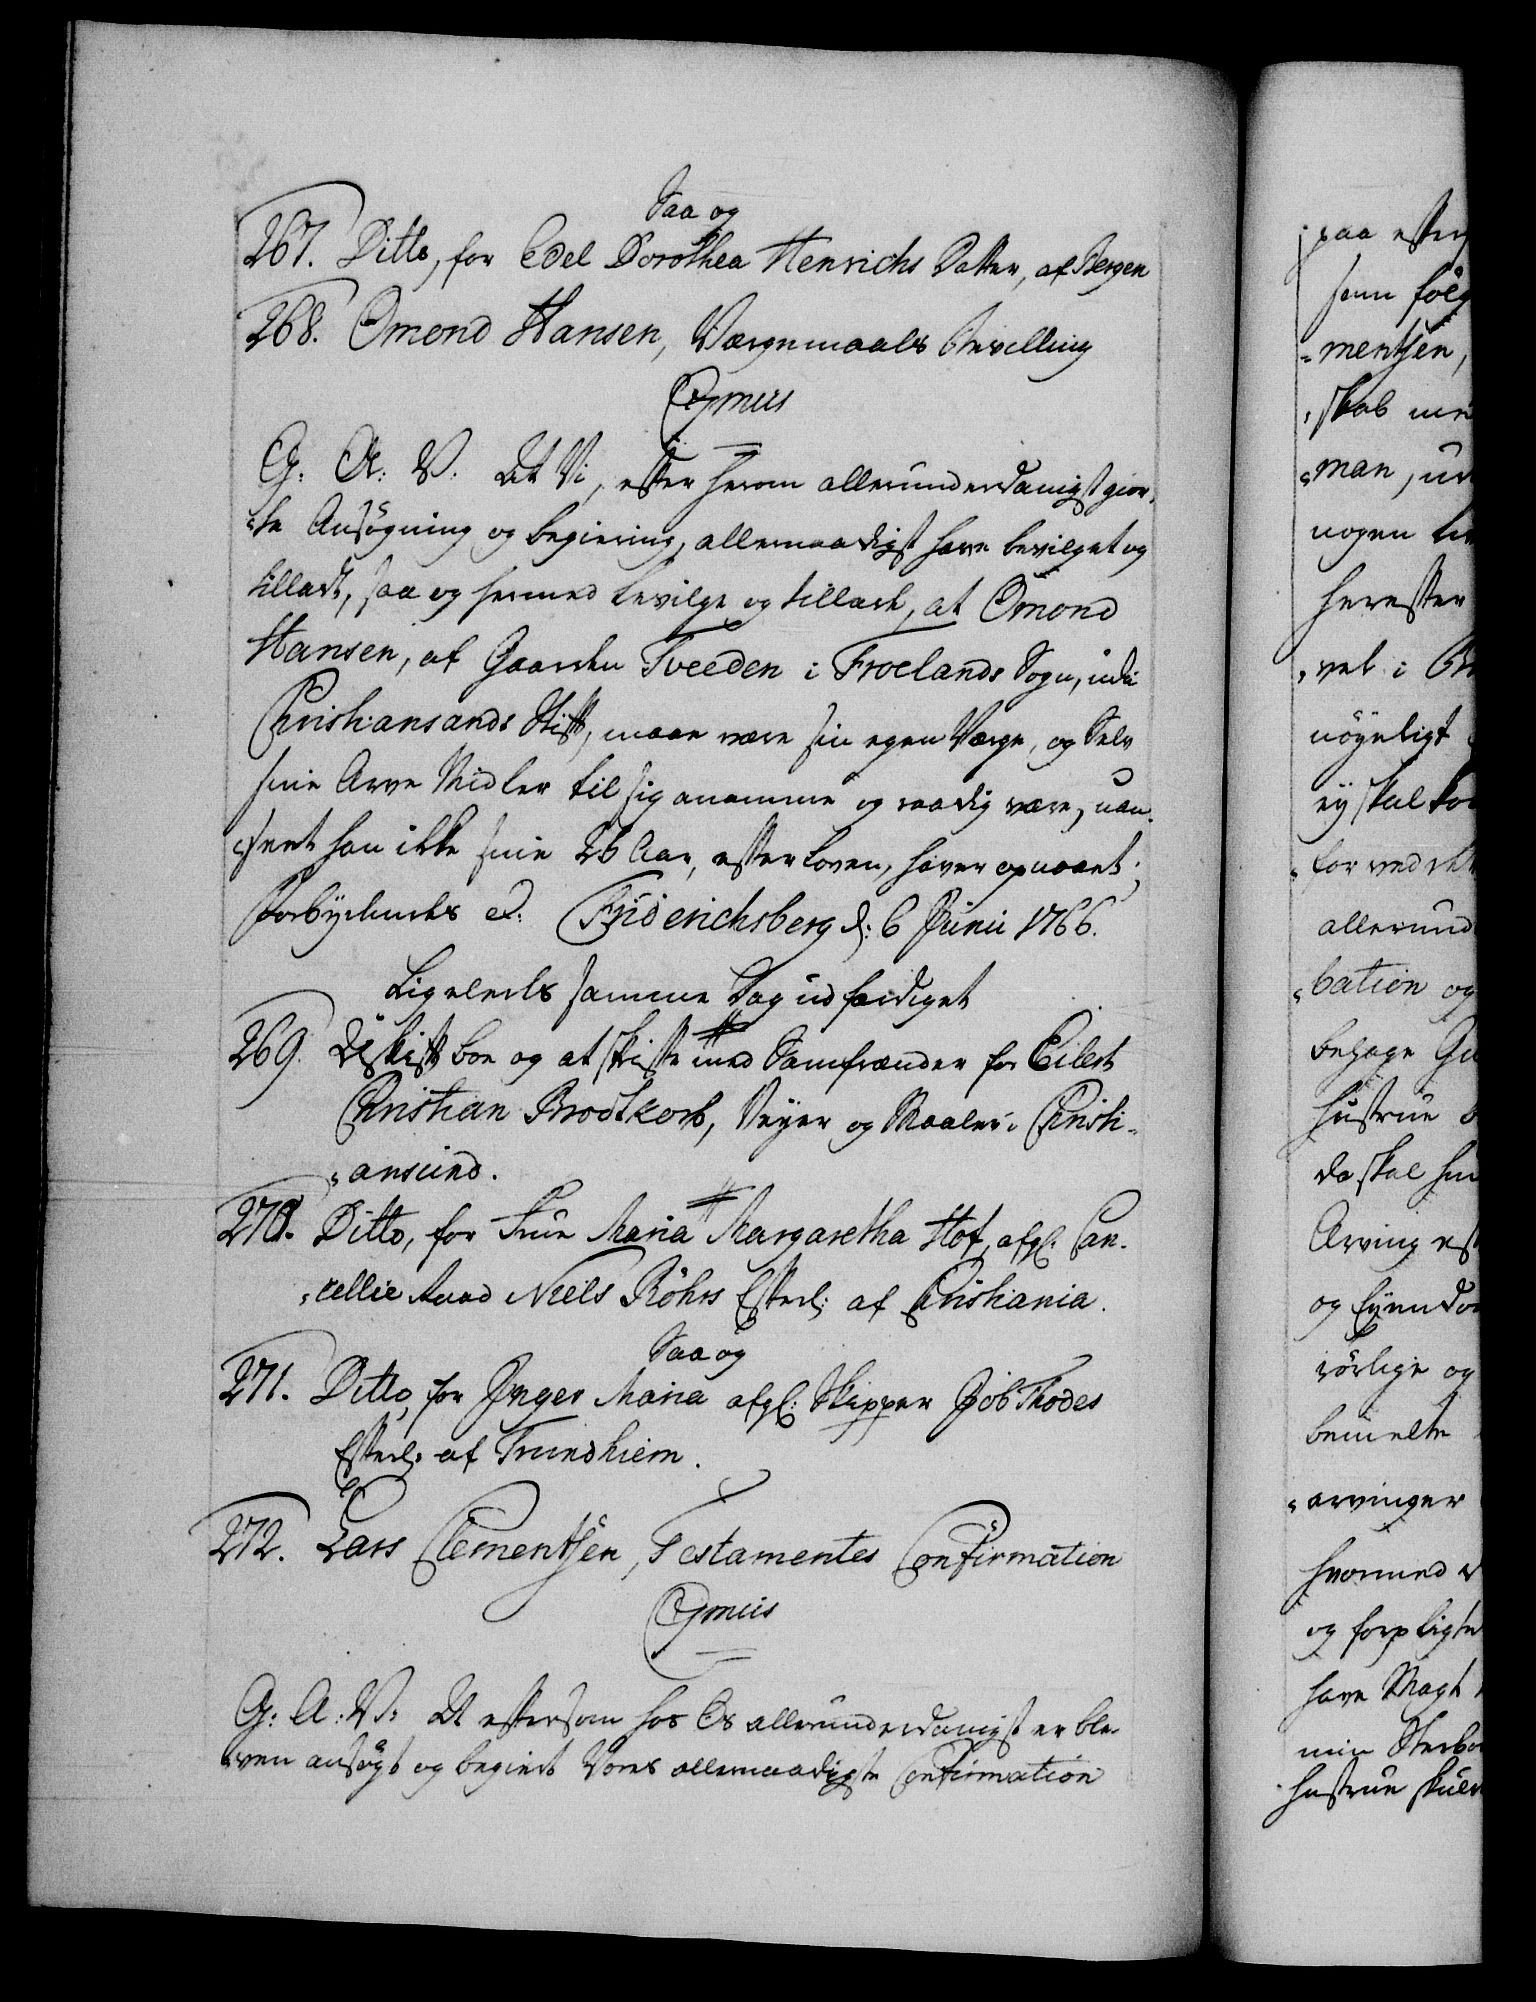 Saa og
267. Ditto, for Edel Dorothea Henrichs Datter, af Bergen
268. Omond Hansen, Værgemaals Bevilling
G: A: V: At Vi, efter herom allerunderdanigst gior-
-te Ansøgning og begiering, allernaadigst have bevilget og
tilladt, saa og hermed bevilge og tillade, at Omond
Hansen, af Gaarden Tveeden i Froelands Sogn, udi
Christiansands Stift, maae være sin egen Værge, og Selv
sine Arve Midler til sig anamme og raadig være, uan-
-seet han ikke sine 25 Aar, efter Loven, haver opnaaet;
Forbydendes &. Friderichsberg d: 6 Junii 1766.
Ligeledes samme Dag udfærdiget
269. Uskift boe og at skifte med Samfrænder for Eilert
Christian Brodtkorb, Veyer og Maaler i Christi-
-ansund.
270. Ditto, for Frue Maria Margaretha Hof, afg: Can-
-cellie Raad Niels Röhrs Efterl: af Christiania.
Saa og
271. Ditto, for Inger Maria afg: Skipper Job Thodes
Efterl: af Trundhiem.
272. Lars Clementsen, Testamentes Confirmation
G: A: V: At eftersom hos Os allerunderdanigst er ble-
-ven ansøgt og begiert Vores allernaadigste Confirmation
paa efter
som følg
-mentsen,
-skab
-man,
nogen
herefter
-vel i
nøyeligt
ey skal
-for
allerund
-bation og
behage
hustrue
da skal
Arving
og Eyendom
rørlige og
bemelte
-arvinger
hvormed
og forpligte
have Magt
min Sterboe
hustrue